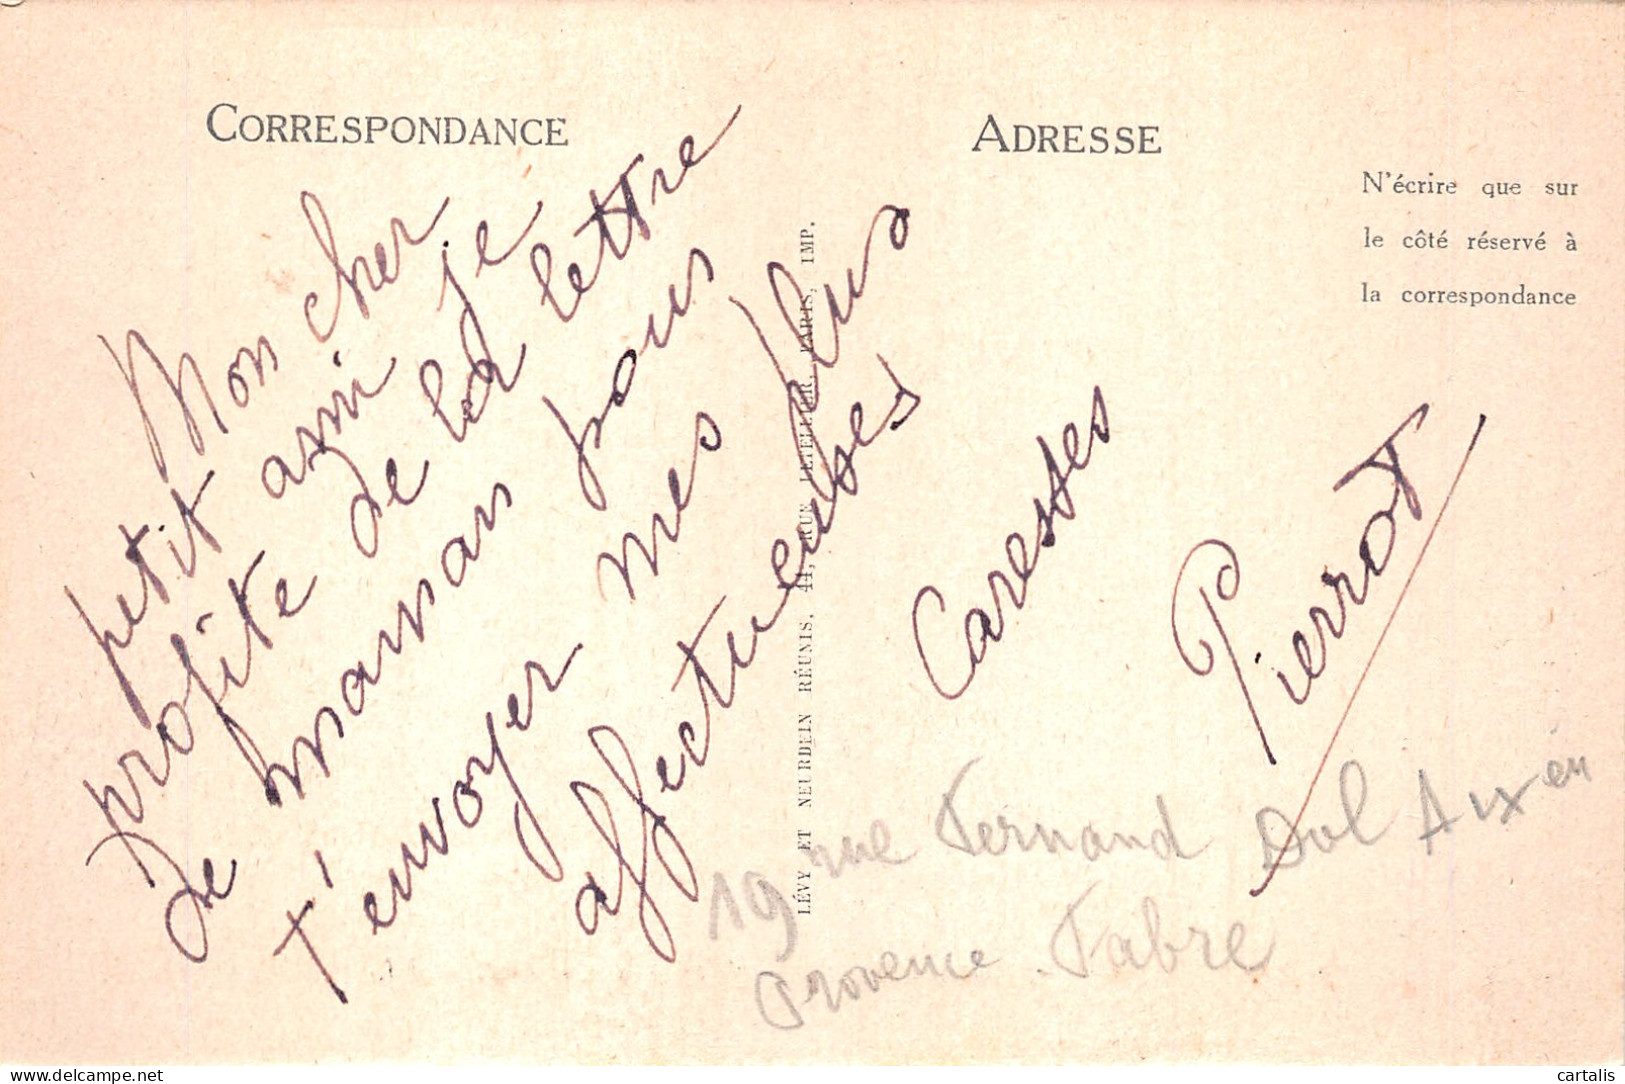 CORRESPONDANCE
ADRESSE
N'écrire que sur
le côté réservé à
la correspondance
LÉVY ET NEURDEIN RÉUNIS, 44, RUE LETELLIER, PARIS, IMP.
Mon cher
petit ami je
profite de la lettre
de maman pour
t'envoyer mes plus
affectueuses
Caresses
Pierrot
19 rue Fernand Dol Aix en
Provence Fabre
delcampe.net
cartalis